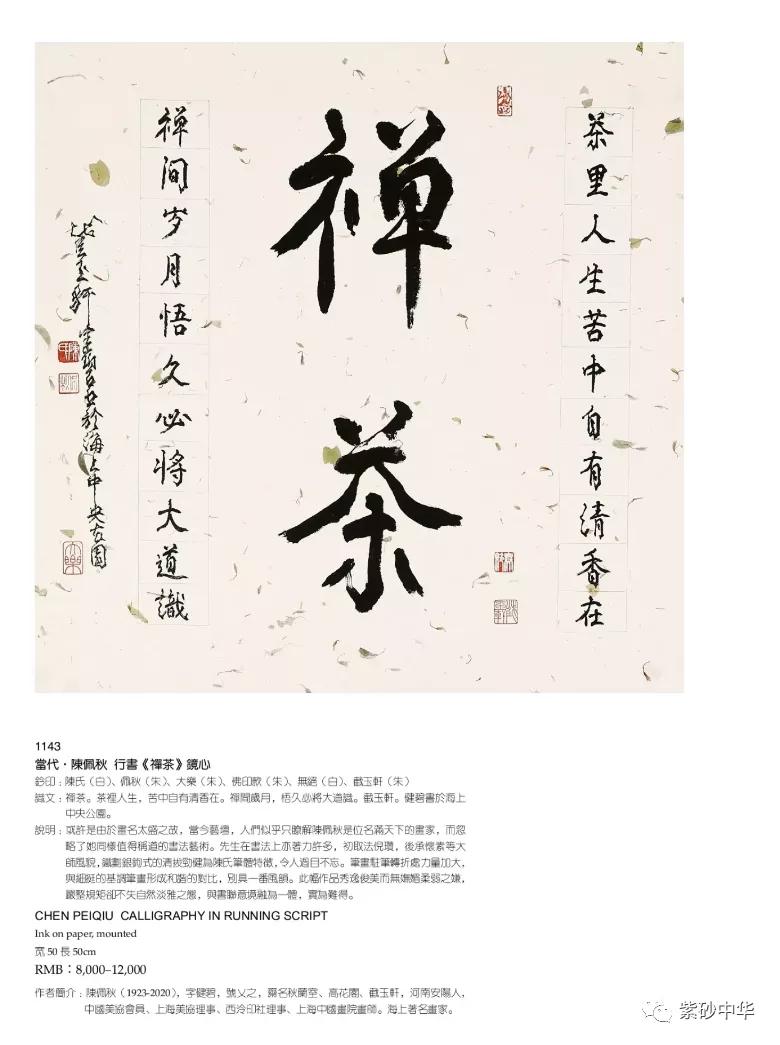 茶里人生苦中自有清香在
禅茶
禅间岁月悟久必将大道識
截玉軒健碧书於海上中央公园
1143
當代·陳佩秋 行書《禪茶》鏡心
鈐印：陳氏（白）、佩秋（朱）、大樂（朱）、佛印款（朱）、無絕（白）、截玉軒（朱）
識文：禪茶。茶裡人生，苦中自有清香在。禪間歲月，悟久必將大道識。截玉軒。健碧書於海上
中央公園。
說明：或許是由於畫名太盛之故，當今藝壇，人們似乎只瞭解陳佩秋是位名滿天下的畫家，而忽
略了她同樣值得稱道的書法藝術。先生在書法上亦著力許多，初取法倪瓚，後承懷素等大
師風貌，鐵劃銀鉤式的清拔勁健為陳氏筆體特徵，令人過目不忘。筆畫駐筆轉折處力量加大，
與細挺的基調筆畫形成和諧的對比，別具一番風韻。此幅作品秀逸俊美而無嫵媚柔弱之嫌，
嚴整規矩卻不失自然淡雅之態，與書聯意境融為一體，實為難得。
CHEN PEIQIU CALLIGRAPHY IN RUNNING SCRIPT
Ink on paper, mounted
宽 50 長 50cm
RMB：8,000–12,000
作者簡介：陳佩秋（1923-2020），字健碧，號乂之，齋名秋蘭室、高花閣、截玉軒，河南安陽人，
中國美協會員、上海美協理事、西泠印社理事、上海中國畫院畫師。海上著名畫家。
紫砂中华